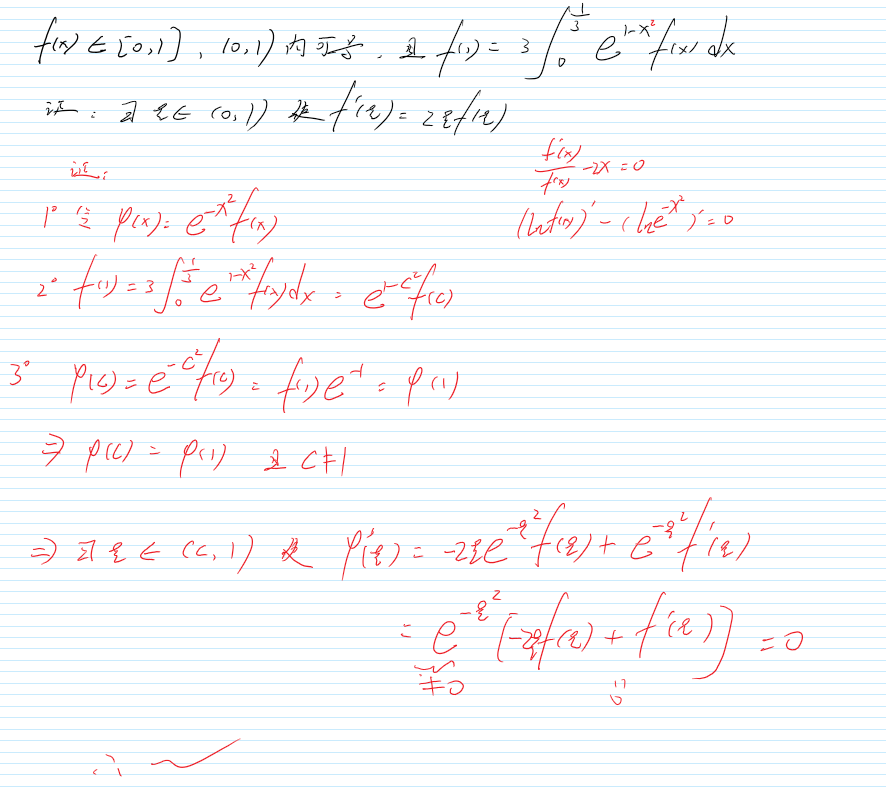 f(x) ∈ [0,1], (0,1) 内可导, 且 f(1) = 3∫₀^{1/3} e^{1-x²} f(x) dx
证: ∃ ξ ∈ (0,1) 使 f'(ξ) = 2ξf(ξ)
证:
f'(x)/f(x) - 2x = 0
1° 令 φ(x) = e^{-x²} f(x)
(ln f(x))' - (ln e^{-x²})' = 0
2° f(1) = 3∫₀^{1/3} e^{1-x²} f(x) dx = e^{1-c²} f(c)
3° φ(c) = e^{-c²} f(c) = f(1) e^{-1} = φ(1)
⇒ φ(c) = φ(1) 且 c ≠ 1
⇒ ∃ ξ ∈ (c, 1) 使 φ'(ξ) = -2ξe^{-ξ²} f(ξ) + e^{-ξ²} f'(ξ)
= e^{-ξ²} [-2ξf(ξ) + f'(ξ)] = 0
≠0
"
0
∴